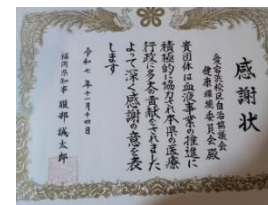 感謝状
愛宕浜校区自治協議会
健康環境委員会 殿
貴団体は血液事業の推進に
積極的に協力され本県の医療
行政に多大の貢献をされました
よって深く感謝の意を表
します
令和七年十一月十四日
福岡県知事 服部誠太郎